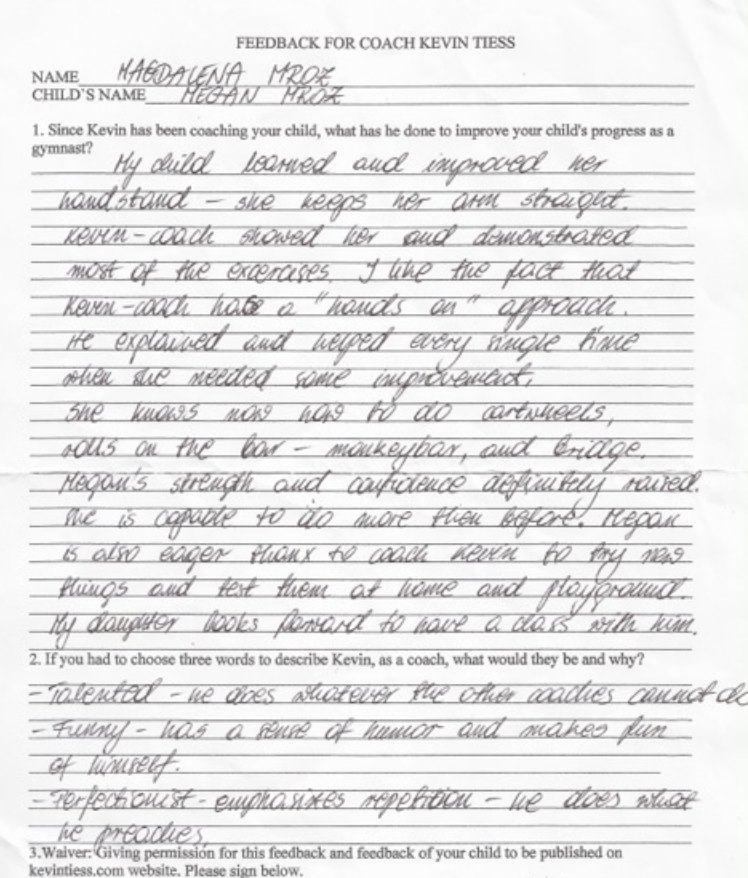 FEEDBACK FOR COACH KEVIN TIESS
NAME MAGDALENA MROZ
CHILD'S NAME MEGAN MROZ
1. Since Kevin has been coaching your child, what has he done to improve your child's progress as a
gymnast?
My child learned and improved her
handstand – she keeps her arm straight.
Kevin-coach showed her and demonstrated
most of the excercises. I like the fact that
Keven-coach has a "hands on" approach.
He explained and helped every single time
when she needed some improvement.
She knows now how to do cartwheels,
rolls on the bar – monkeybar, and bridge.
Megan's strength and confidence definitely raised.
She is capable to do more then before. Megan
is also eager thanx to coach Keven to try new
things and test them at home and playground.
My daughter looks forward to have a class with him.
2. If you had to choose three words to describe Kevin, as a coach, what would they be and why?
- Talented - he does whatever the other coaches cannot do
- Funny - has a sense of humor and makes fun
of himself.
- Perfectionist - emphasizes repetition - he does what
he preaches
3.Waiver: Giving permission for this feedback and feedback of your child to be published on
kevintiess.com website. Please sign below.